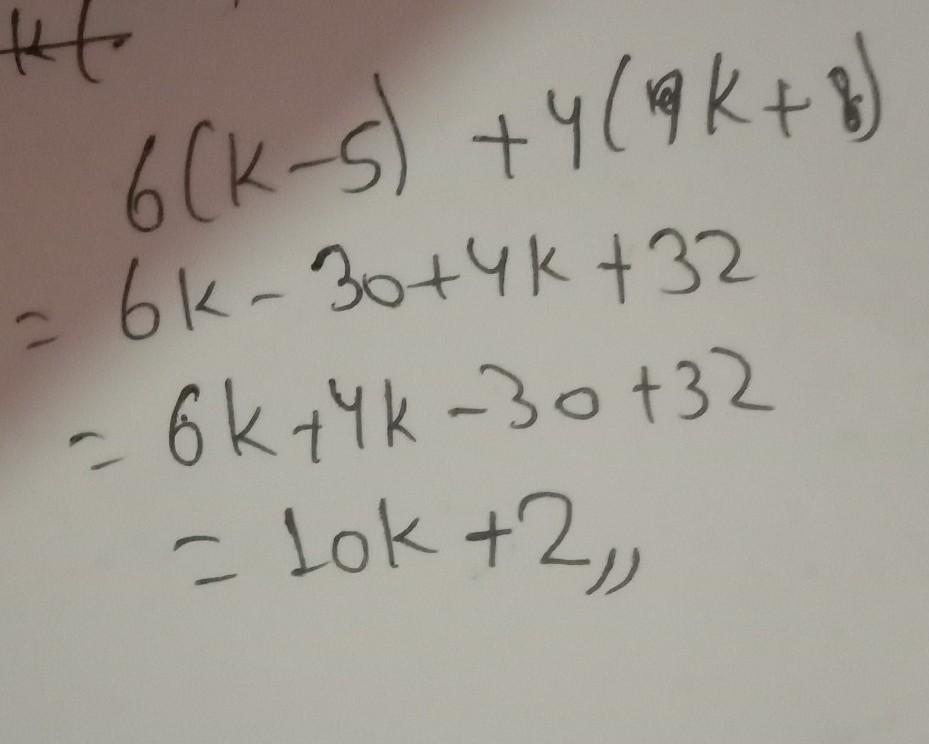 6(k-5) +4(9k+8)
= 6k- 30+4k +32
= 6k+4k -30 +32
= 10k +2,,